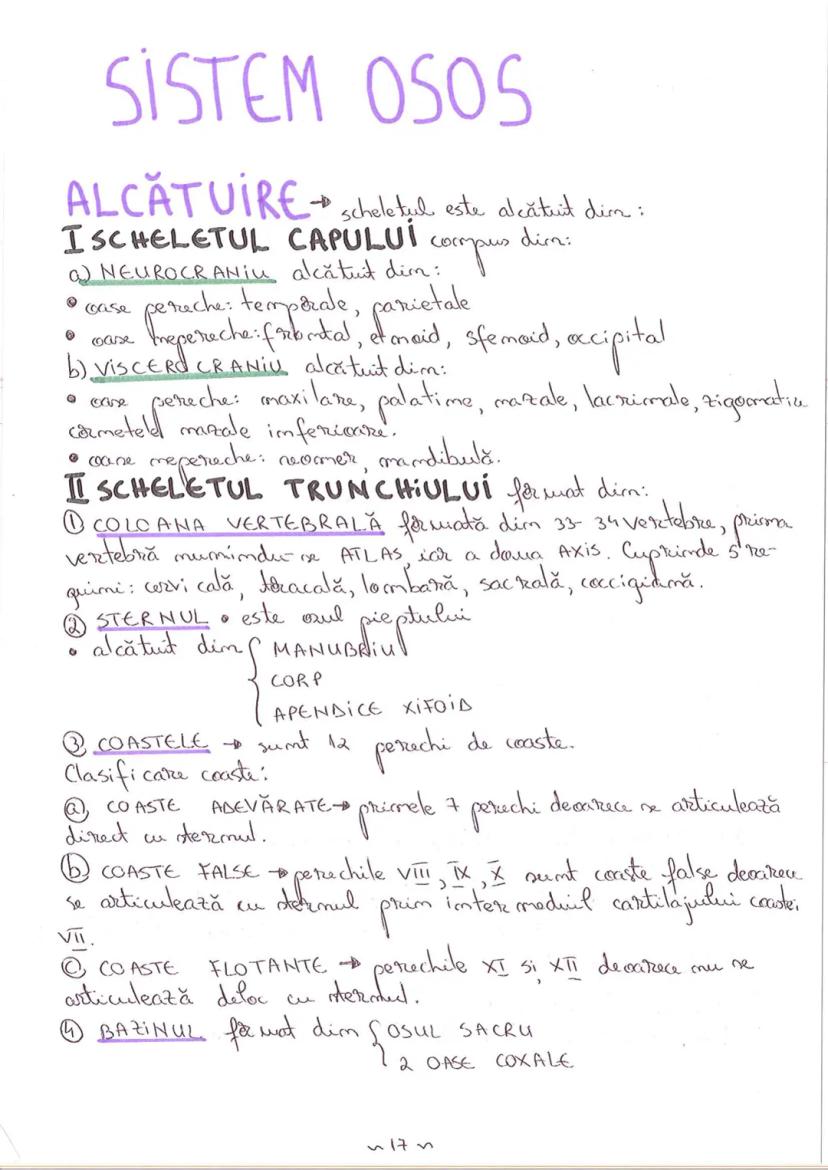 SISTEM OSOS
ALCĂTUIRE → scheletul este alcătuit din:
I SCHELETUL CAPULUI compus din:
a) NEUROCRANIU alcătuit din:
• oase pereche: temporale, parietale
• oase nepereche: frontal, etmoid, sfenoid, occipital
b) VISCEROCRANIU alcătuit din:
• oase pereche: maxilare, palatine, nazale, lacrimale, zigomatice
cornetele nazale inferioare.
• oase nepereche: vomer, mandibulă.
II SCHELETUL TRUNCHIULUI format din:
① COLOANA VERTEBRALĂ formată din 33-34 vertebre, prima
vertebră numindu-se ATLAS, iar a doua AXIS. Cuprinde 5 re-
giuni: cervicală, toracală, lombară, sacrală, coccigiană.
② STERNUL • este osul pieptului
• alcătuit din { MANUBRIU
CORP
APENDICE XIFOID
③ COASTELE → sunt 12 perechi de coaste.
Clasificare coaste:
ⓐ COASTE ADEVĂRATE → primele 7 perechi deoarece se articulează
direct cu sternul.
ⓑ COASTE FALSE → perechile VIII, IX, X sunt coaste false deoarece
se articulează cu sternul prin intermediul cartilajului coastei
VII.
ⓒ COASTE FLOTANTE → perechile XI și XII deoarece nu se
articulează deloc cu sternul.
④ BAZINUL format din { OSUL SACRU
2 OASE COXALE
~ 17 ~